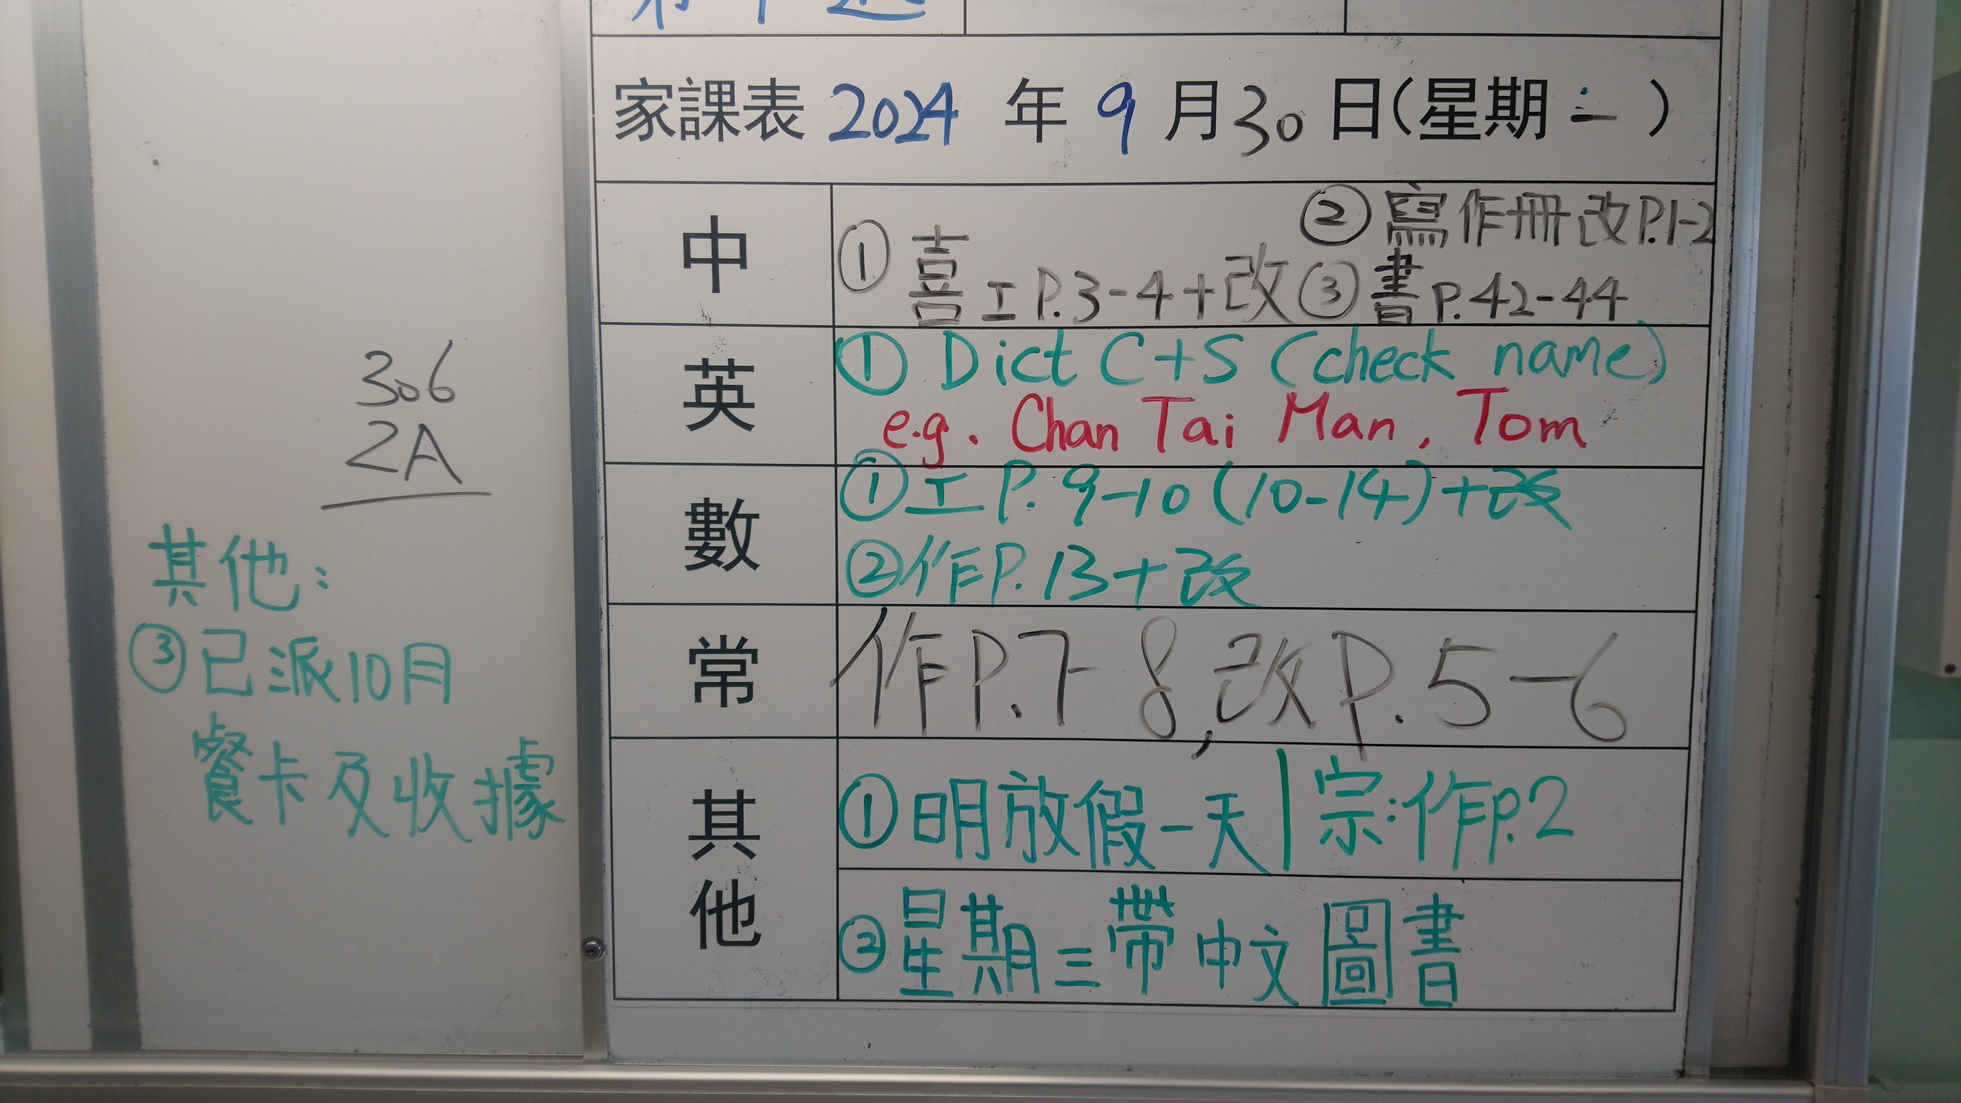 306
2A
其他：
③已派10月
餐卡及收據
家課表 2024 年 9 月 30 日(星期 )
中
②寫作冊改P.1-2
①喜工P.3-4+改 ③書P.42-44
英
①Dict C+S (check name)
e.g. Chan Tai Man, Tom
數
①工P.9-10(10-14)+改
②作P.13+改
常
作P.7-8,改P.5-6
其他
①明放假一天|宗:作P.2
②星期三帶中文圖書